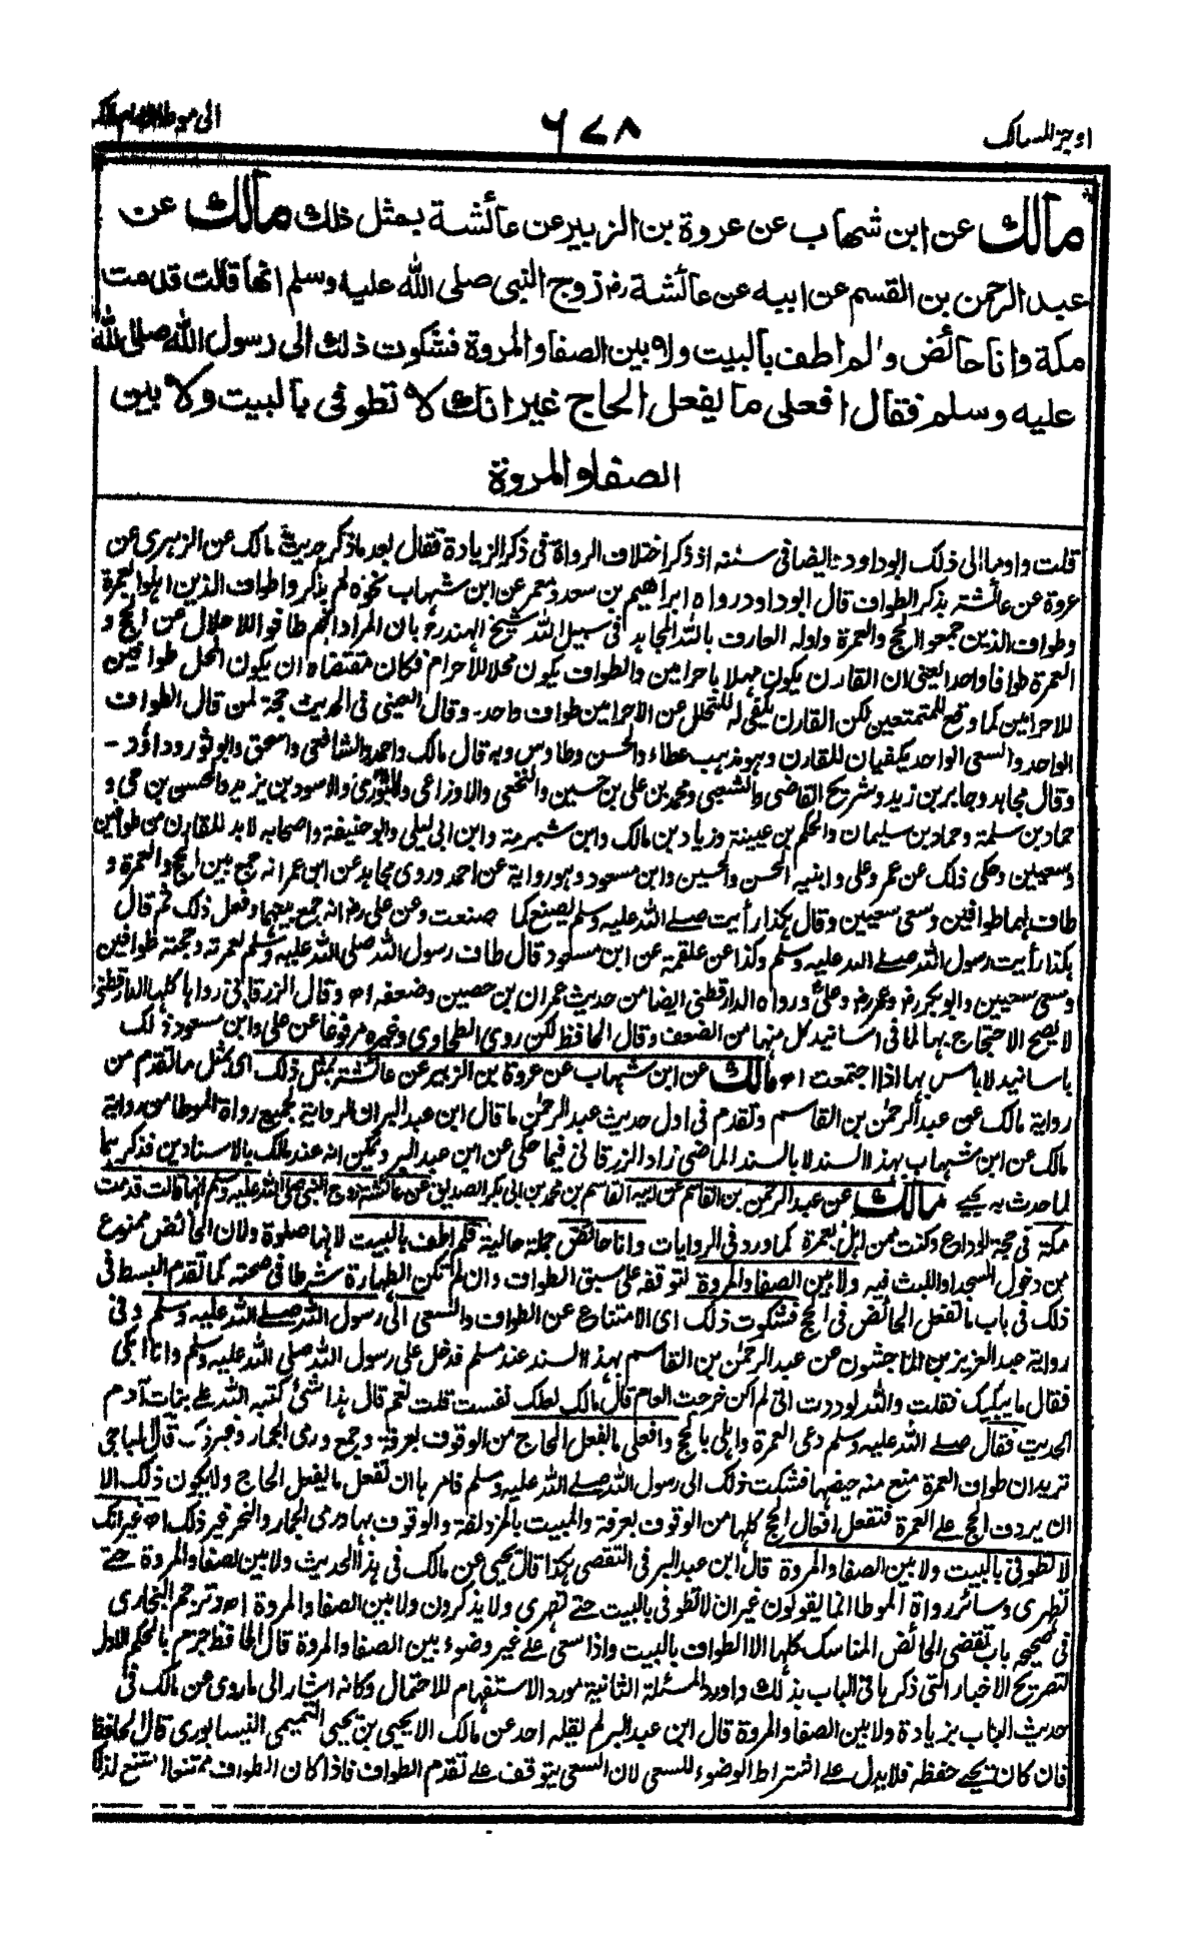 اوجز المسالك
٦٧٨
الى موطا الامام مالك
مالك عن ابن شهاب عن عروة بن الزبير عن عائشة بمثل ذلك مالك عن
عبد الرحمن بن القسم عن ابيه عن عائشة رض زوج النبى صلى الله عليه وسلم انها قالت قدمت
مكة وانا حائض ولم اطف بالبيت ولا بين الصفا والمروة فشكوت ذلك الى رسول الله صلى الله
عليه وسلم فقال افعلى ما يفعل الحاج غير انك لا تطوفى بالبيت ولا بين
الصفا والمروة
قلت واوما الى ذلك ابو داود ايضا فى سننه اذ ذكر اختلاف الرواة فى ذكر الزيادة فقال بعد ما ذكر حديث مالك عن الزهرى عن
عروة عن عائشة بذكر الطواف قال ابو داود رواه ابراهيم بن سعد ومعمر عن ابن شهاب نحوه لم يذكروا طواف الذين اهلوا بالعمرة
وطواف الذين جمعوا الحج والعمرة واوله العارف بالله المجاهد فى سبيل الله شيخ الهند بان المراد انهم طافوا للاحلال عن الحج و
العمرة طوافا واحدا يعنى ان القارن يكون مهلا باحرامين والطواف يكون محلا للاحرام فكان مقتضاه ان يكون المحل طوافين
للاحرامين كما وقع للمتمتعين لكن القارن يكفى له للتحلل عن الاحرامين طواف واحد۔ وقال العينى فى الحديث حجة لمن قال الطواف
الواحد والسعى الواحد يكفيان للقارن وهو مذهب عطاء والحسن وطاوس وبه قال مالك واحمد والشافعى واسحق وابو ثور وداؤد ۔
وقال مجاهد وجابر بن زيد وشريح القاضى والشعبى ومحمد بن على بن حسين والنخعى والاوزاعى والثورى والاسود بن يزيد والحسن بن حى و
حماد بن سلمة وحماد بن سليمان والحكم بن عيينة وزياد بن مالك وابن شبرمة وابن ابى ليلى وابو حنيفة واصحابه لابد للقارن من طوافين
وسعيين وحكى ذلك عن عمر وعلى وابنيه الحسن والحسين وابن مسعود وهو رواية عن احمد وروى مجاهد عن ابن عمر انه جمع بين الحج والعمرة و
طاف لهما طوافين وسعى سعيين وقال هكذا رأيت رسول الله صلے الله عليه وسلم يصنع كما صنعت وعن على رض انه جمع بينهما وفعل ذلك ثم قال
هكذا رأيت رسول الله صلے الله عليه وسلم وكذا عن علقمة عن ابن مسعود قال طاف رسول الله صلى الله عليه وسلم لعمرته وحجته طوافين
وسعى سعيين وابو بكر رض وعمر رض وعلى ورواه الدارقطنى ايضا من حديث عمران بن حصين وضعفه اھ وقال الزرقانى رواها كلها الدارقطنى
لا يصح الاحتجاج بها لما فى اسانيد كل منها من الضعف وقال الحافظ لكن روى الطحاوى وغيره مرفوعا عن على وابن مسعود ذلك
باسانيد لا باس بها اذا اجتمعت اھ مالك عن ابن شهاب عن عروة بن الزبير عن عائشة بمثل ذلك اى بمثل ما تقدم من
رواية مالك عن عبد الرحمٰن بن القاسم وتقدم فى اول حديث عبد الرحمٰن ما قال ابن عبد البر ان الرواية لجميع رواة الموطا من رواية
مالك عن ابن شهاب بهذا السند لا بالسند الماضى زاد الزرقانى فيما حكى عن ابن عبد البر ويمكن انه عند مالك بالاسنادين فذكر بهما
لما حدث به يحيے مالك عن عبد الرحمن بن القاسم عن ابيه القاسم بن محمد بن ابى بكر الصديق عن عائشة زوج النبى صلى الله عليه وسلم انها قالت قدمت
مكة فى حجة الوداع وكنت ممن اهل بعمرة كما ورد فى الروايات وانا حائض جملة حالية فلم اطف بالبيت لانها صلوة ولان الحائض ممنوع
من دخول المسجد او اللبث فيه ولا بين الصفا والمروة لتوقفه على سبق الطواف وان لم تكن الطهارة شرطا فى صحته كما تقدم البسط فى
ذلك فى باب ما تفعل الحائض فى الحج فشكوت ذلك اى الامتناع عن الطواف والسعى الى رسول الله صلے الله عليه وسلم وفى
رواية عبد العزيز بن الماجشون عن عبد الرحمٰن بن القاسم بهذا السند عند مسلم فدخل على رسول الله صلى الله عليه وسلم وانا ابكى
فقال ما يبكيك فقلت والله لوددت انى لم اكن خرجت العام قال مالك لعلك نفست قلت نعم قال هذا شئ كتبه الله علے بنات آدم
الحديث فقال صلے الله عليه وسلم دعى العمرة واهلى بالحج وافعلى ما يفعل الحاج من الوقوف بعرفة وجمع ورمى الجمار وغير ذلك۔ قال الباجى
تريد ان طواف العمرة منع منه حيضها فشكت ذلك الى رسول الله صلے الله عليه وسلم فامرها ان تفعل ما يفعل الحاج ولا يكون ذلك الا
ان يردف الحج علے العمرة فتفعل افعال الحج كلها من الوقوف بعرفة والمبيت بالمزدلفة والوقوف بها ورمى الجمار والنحر وغير ذلك اھ غير انك
لا تطوفى بالبيت ولا بين الصفا والمروة قال ابن عبد البر فى التقصى هكذا قال يحيى عن مالك فى هذا الحديث ولا بين الصفا والمروة حتے
تطهرى وسائر رواة الموطا انما يقولون غير ان لا تطوفى بالبيت حتے تطهرى ولا يذكرون ولا بين الصفا والمروة اھ وترجم البخارى
فى صحيحه باب تقضى الحائض المناسك كلها الا الطواف بالبيت واذا سعى علے غير وضوء بين الصفا والمروة قال الحافظ جزم بالحكم الاول
لتصريح الاخبار التى ذكرها فى الباب بذلك واورد المسئلة الثانية مورد الاستفهام للاحتمال وكانه اشار الى ما روى عن مالك فى
حديث الباب بزيادة ولا بين الصفا والمروة قال ابن عبد البر لم يقله احد عن مالك الا يحيى بن يحيى التميمى النيسابورى قال الحافظ
فان كان يحيے حفظه فلا يدل علے اشتراط الوضوء للسعى لان السعى يتوقف علے تقدم الطواف فاذا كان الطواف ممتنعا امتنع لذلك